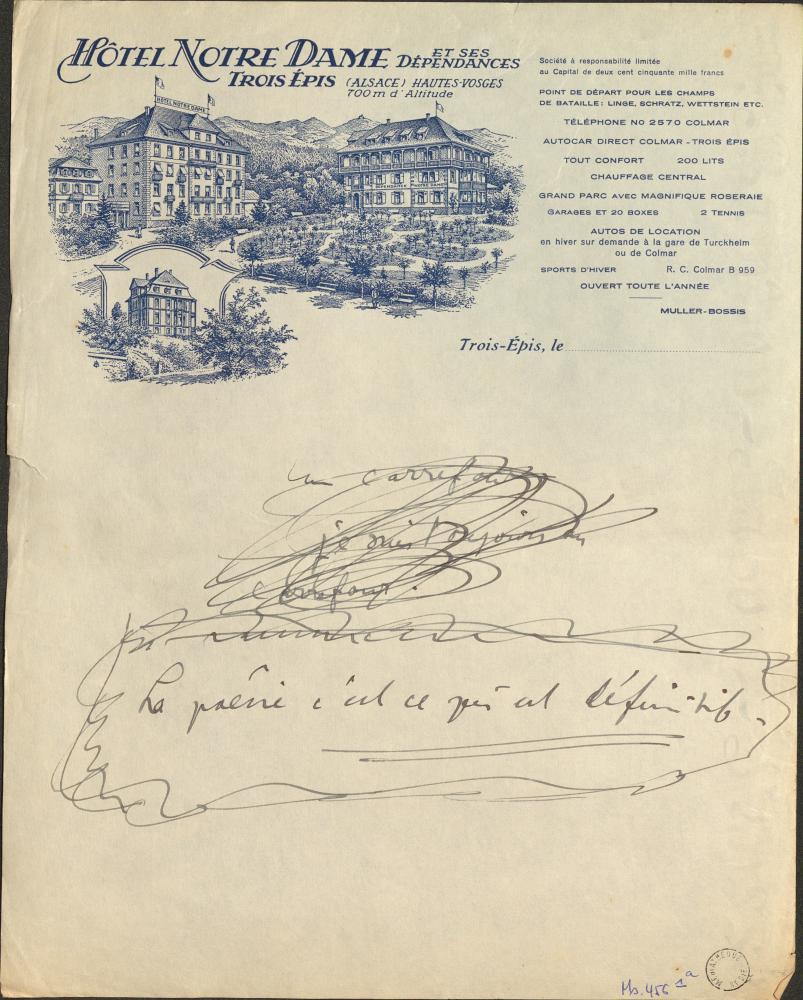 HÔTEL NOTRE DAME ET SES DÉPENDANCES
TROIS ÉPIS (ALSACE) HAUTES-VOSGES
700 m d'Altitude
Société à responsabilité limitée
au Capital de deux cent cinquante mille francs
POINT DE DÉPART POUR LES CHAMPS
DE BATAILLE: LINGE, SCHRATZ, WETTSTEIN ETC.
TÉLÉPHONE NO 2570 COLMAR
AUTOCAR DIRECT COLMAR - TROIS ÉPIS
TOUT CONFORT 200 LITS
CHAUFFAGE CENTRAL
GRAND PARC AVEC MAGNIFIQUE ROSERAIE
GARAGES ET 20 BOXES 2 TENNIS
AUTOS DE LOCATION
en hiver sur demande à la gare de Turckheim
ou de Colmar
SPORTS D'HIVER R. C. Colmar B 959
OUVERT TOUTE L'ANNÉE
MULLER-BOSSIS
HOTEL NOTRE DAME
Trois-Épis, le
un carrefour
je suis toujours au
carrefour.
La poésie c'est ce qui est définitif.
Ms. 456 1 a